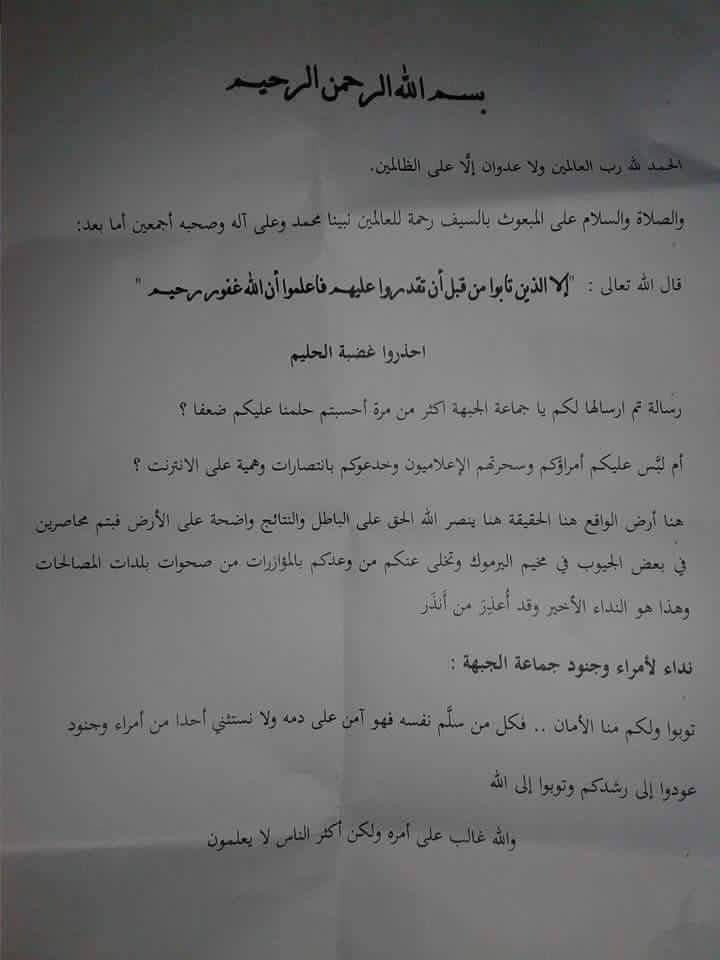 بسم الله الرحمن الرحيم
الحمد لله رب العالمين ولا عدوان إلَّا على الظالمين.
والصلاة والسلام على المبعوث بالسيف رحمة للعالمين نبينا محمد وعلى آله وصحبه أجمعين أما بعد:
قال الله تعالى : "إلا الذين تابوا من قبل أن تقدروا عليهم فاعلموا أن الله غفور رحيم "
احذروا غضبة الحليم
رسالة تم ارسالها لكم يا جماعة الجبهة اكثر من مرة أحسبتم حلمنا عليكم ضعفا ؟
أم لبَّس عليكم أمراؤكم وسحرتهم الإعلاميون وخدعوكم بانتصارات وهمية على الانترنت ؟
هنا أرض الواقع هنا الحقيقة هنا ينصر الله الحق على الباطل والنتائج واضحة على الأرض فبتم محاصرين
في بعض الجيوب في مخيم اليرموك وتخلى عنكم من وعدكم بالمؤازرات من صحوات بلدات المصالحات
وهذا هو النداء الأخير وقد أُعذِرَ من أَنذَر
نداء لأمراء وجنود جماعة الجبهة :
توبوا ولكم منا الأمان .. فكل من سلَّم نفسه فهو آمن على دمه ولا نستثني أحدا من أمراء وجنود
عودوا إلى رشدكم وتوبوا إلى الله
والله غالب على أمره ولكن أكثر الناس لا يعلمون